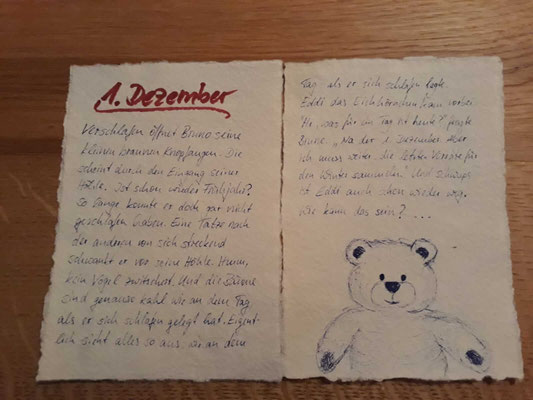 1. Dezember
Verschlafen öffnet Bruno seine
kleinen braunen Knopfaugen. Die
scheint durch den Eingang seiner
Höhle. Ist schon wieder Frühjahr?
So lange konnte er doch gar nicht
geschlafen haben. Eine Tatze nach
der anderen von sich streckend
schwankt er vor seine Höhle. Hmm,
kein Vogel zwitschert. Und die Bäume
sind genauso kahl wie an dem Tag
als er sich schlafen gelegt hat. Eigent-
lich sieht alles so aus, wie an dem
Tag als er sich schlafen legte.
Eddi das Eichhörnchen kam vorbei.
was für ein Tag ist heute?" fragte
Bruno. „Na der 1. Dezember. Aber
ich muss weiter die letzten Vorräte für
den Winter sammeln." Und schwups
ist Eddi auch schon wieder weg.
Wie kann das sein? ...